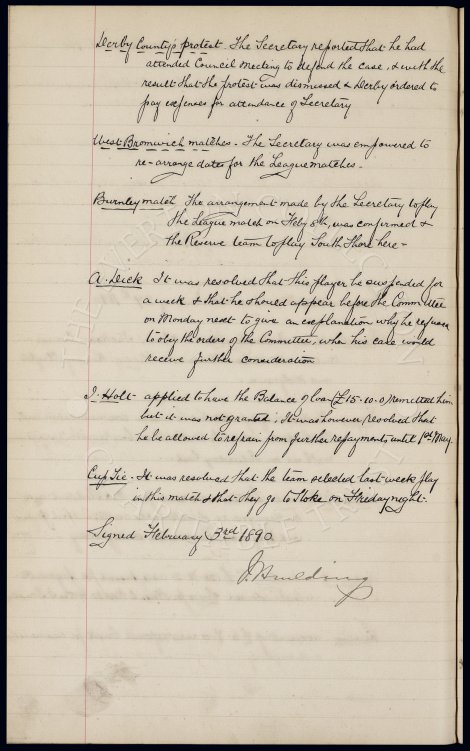 Derby County's protest. The Secretary reported that he had
attended Council Meeting to defend the case, & with the
result that the protest was dismissed & Derby ordered to
pay expenses for attendance of Secretary
West Bromwich matches. The Secretary was empowered to
re-arrange dates for the League matches.
Burnley match The arrangement made by the Secretary to play
the League match on Feby 8th, was confirmed &
the Reserve team to play South Shore here -
A. Dick It was resolved that this player be suspended for
a week & that he should appear before the Committee
on Monday next to give an explanation why he refuses
to obey the orders of the Committee, when his case would
receive further consideration
J. Holt - applied to have the Balance of loan (£15-10-0) remitted him
but it was not granted; It was however, resolved that
he be allowed to refrain from further repayments until 1st May
Cup Tie - It was resolved that the team selected last week play
in this match & that they go to Stoke on Friday night.
Signed February 3rd 1890